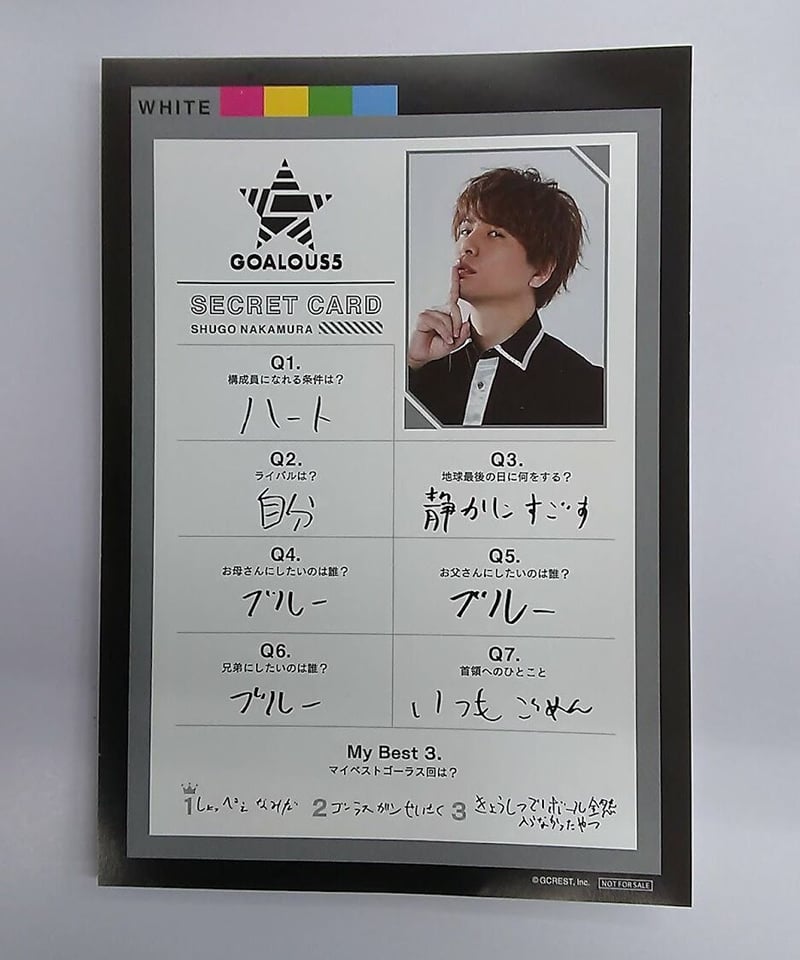 WHITE
GOALOUS5
SECRET CARD
SHUGO NAKAMURA
Q1.
構成員になれる条件は?
ハート
Q2.
ライバルは?
自分
Q3.
地球最後の日に何をする?
静かにすごす
Q4.
お母さんにしたいのは誰?
ブルー
Q5.
お父さんにしたいのは誰?
ブルー
Q6.
兄弟にしたいのは誰?
ブルー
Q7.
首領へのひとこと
いつもごめん
My Best 3.
マイベストゴーラス回は?
1 しょっぺぇ なみだ
2 ゴーラスガンせいさく
3 きょうしつでボール全然
入らなかったやつ
©GCREST, Inc. NOT FOR SALE